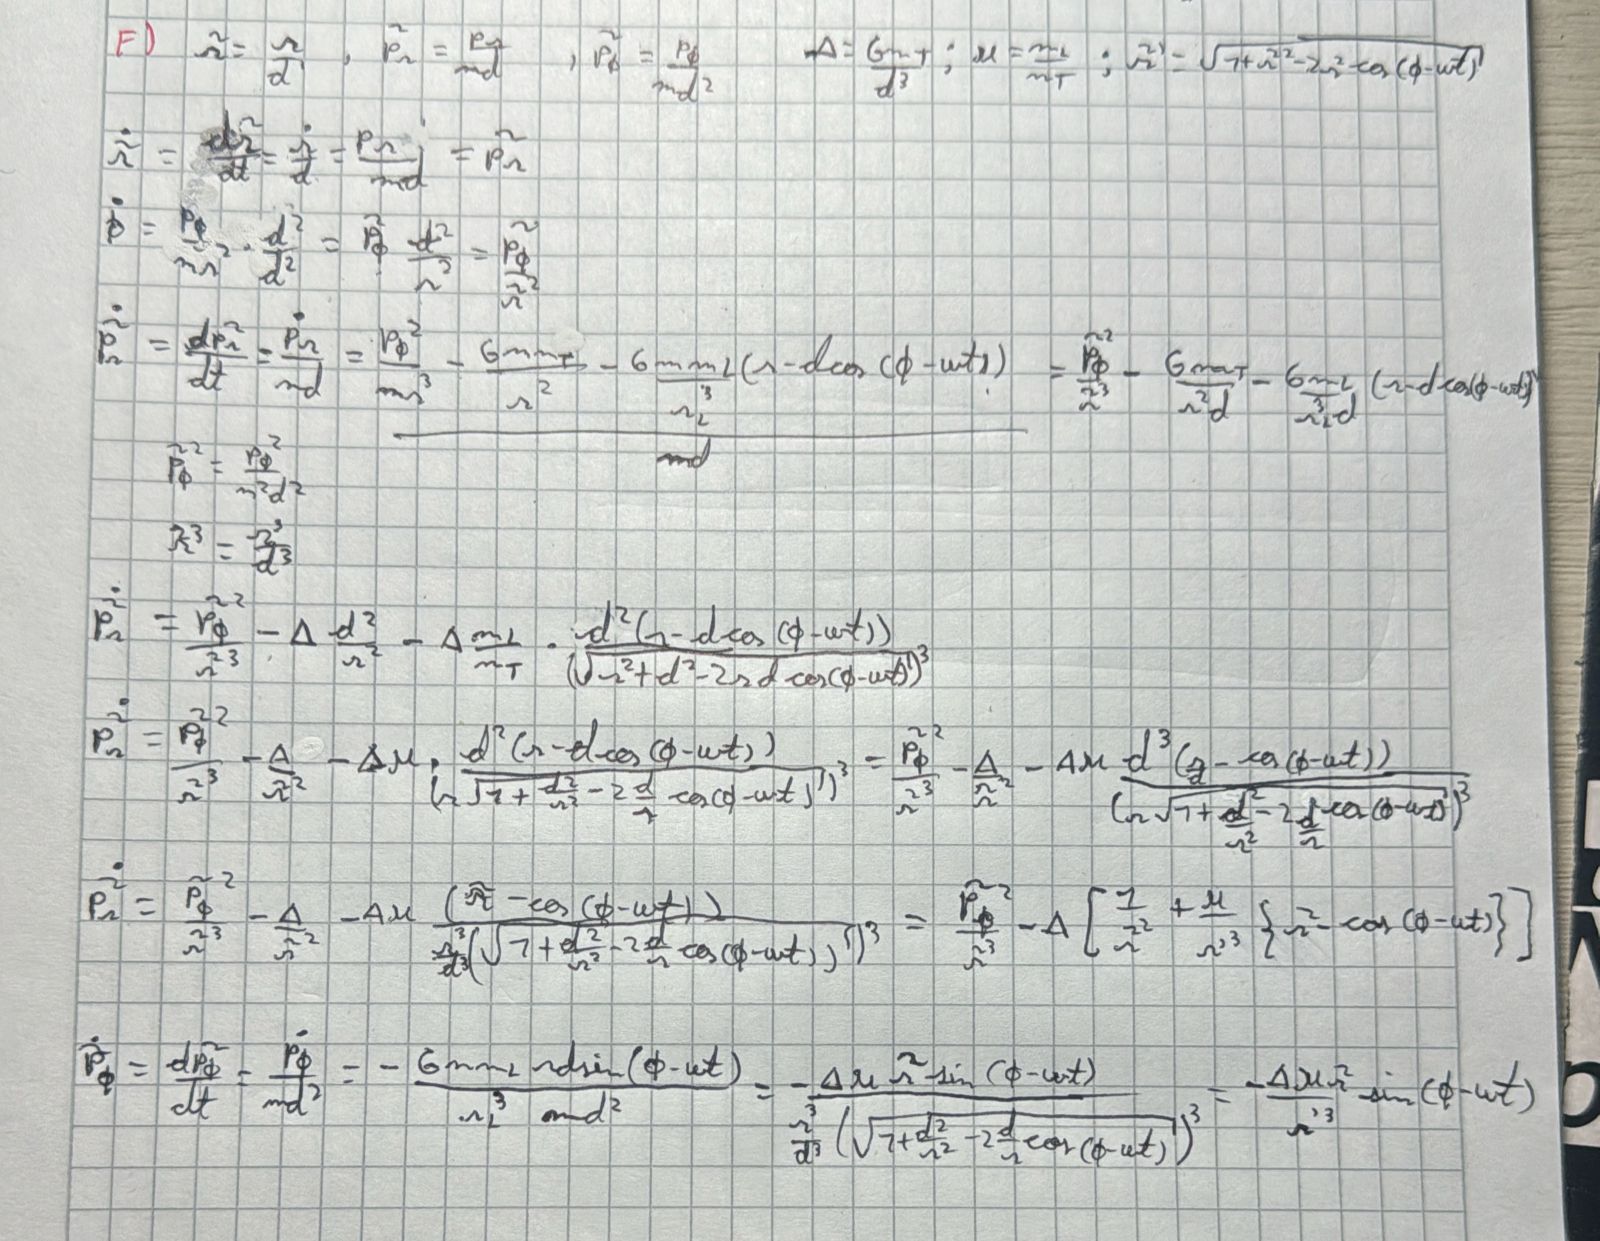 F) r̃ = r/d , p̃r = pr/md , p̃ϕ = pϕ/md² Δ = GmT/d³ ; μ = mL/mT ; r̃' = √(1+r̃²-2r̃ cos(ϕ-ωt))
r̃̇ = dr̃/dt = ṙ/d = pr/md = p̃r
ϕ̇ = pϕ/mr² · d²/d² = p̃ϕ d²/r² = p̃ϕ/r̃²
p̃̇r = dp̃r/dt = ṗr/md = (pϕ²/mr³ - GmmT/r² - GmmL/rL³ (r-dcos(ϕ-ωt)))/md = p̃ϕ²/r̃³ - GmT/r²d - GmL/rL³d (r-dcos(ϕ-ωt))
p̃ϕ² = pϕ²/m²d²
r̃³ = r³/d³
p̃̇r = p̃ϕ²/r̃³ - Δ d²/r² - Δ mL/mT · d²(r-dcos(ϕ-ωt))/(√(r²+d²-2rdcos(ϕ-ωt)))³
p̃̇r = p̃ϕ²/r̃³ - Δ/r̃² - Δμ · d²(r-dcos(ϕ-ωt))/(r√(1+d²/r²-2d/r cos(ϕ-ωt)))³ = p̃ϕ²/r̃³ - Δ/r̃² - Δμ d³(r/d-cos(ϕ-ωt))/(r√(1+d²/r²-2d/r cos(ϕ-ωt)))³
p̃̇r = p̃ϕ²/r̃³ - Δ/r̃² - Δμ (r̃-cos(ϕ-ωt))/(r³/d³(√(1+d²/r²-2d/r cos(ϕ-ωt)))³) = p̃ϕ²/r̃³ - Δ[1/r̃² + μ/r̃'³ {r̃-cos(ϕ-ωt)}]
p̃̇ϕ = dp̃ϕ/dt = ṗϕ/md² = - GmmL rdsin(ϕ-ωt)/rL³ md² = - Δμ r̃ sin(ϕ-ωt)/(r³/d³(√(1+d²/r²-2d/r cos(ϕ-ωt)))³) = -Δμr̃/r̃'³ sin(ϕ-ωt)